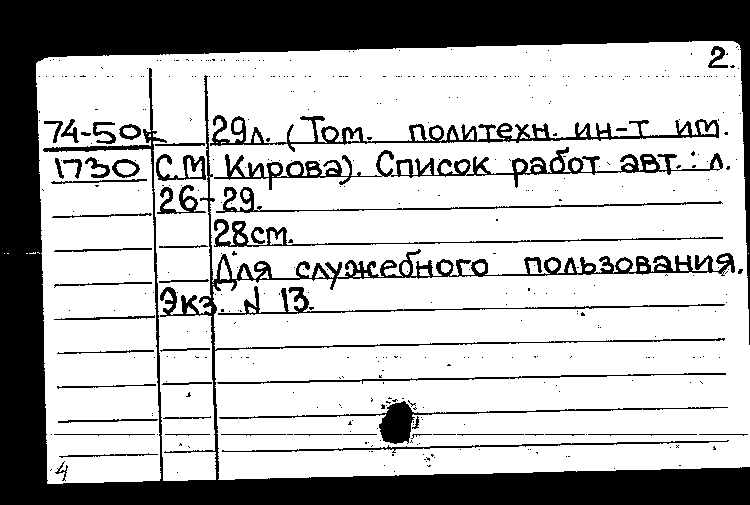 2.
74-50к 29л. (Том. политехн. ин-т им.
1730 С.М. Кирова). Список работ авт.: л.
26-29.
28см.
Для служебного пользования.
Экз. N 13.
4